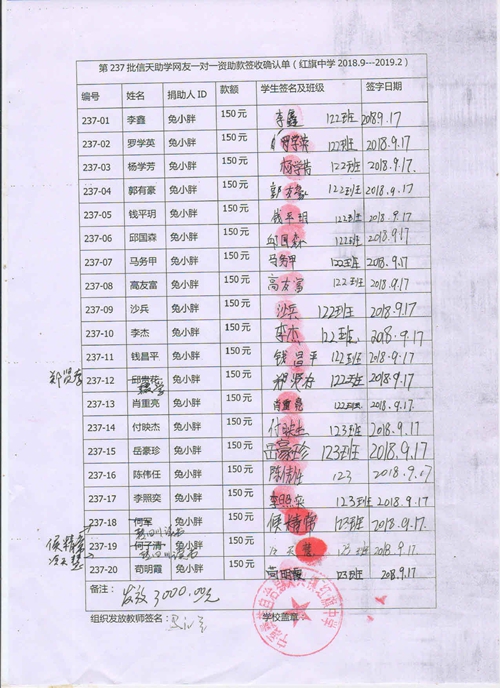 第 237 批信天助学网友一对一资助款签收确认单（红旗中学 2018.9---2019.2）
编号 姓名 捐助人 ID 款额 学生签名及班级 签字日期
237-01 李鑫 兔小胖 150 元 李鑫 122班 2018.9.17
237-02 罗学英 兔小胖 150 元 122班 2018.9.17
237-03 杨学芳 兔小胖 150 元 杨学芳 122班 2018.9.17
237-04 郭有豪 兔小胖 150 元 郭有豪 122班 2018.9.17
237-05 钱平玥 兔小胖 150 元 钱平玥 122班 2018.9.17
237-06 邱国森 兔小胖 150 元 邱国森 122班 2018.9.17
237-07 马务甲 兔小胖 150 元 马务甲 122班 2018.9.17
237-08 高友富 兔小胖 150 元 高友富 122班 2018.9.17
237-09 沙兵 兔小胖 150 元 沙兵 122班 2018.9.17
237-10 李杰 兔小胖 150 元 李杰 122班 2018.9.17
237-11 钱昌平 兔小胖 150 元 钱昌平 122班 2018.9.17
237-12 兔小胖 150 元 122班 2018.9.17
237-13 肖重亮 兔小胖 150 元 肖重亮 122班 2018.9.17
237-14 付映杰 兔小胖 150 元 付映杰 123班 2018.9.17
237-15 岳豪珍 兔小胖 150 元 岳豪珍 123班 2018.9.17
237-16 陈伟任 兔小胖 150 元 陈伟任 123 2018.9.17
237-17 李照奕 兔小胖 150 元 李照奕 123班 2018.9.17
237-18 何军 兔小胖 150 元 侯精常 123班 2018.9.17
237-19 何子清 兔小胖 150 元 2018.9.17
237-20 苟明霞 兔小胖 150 元 苟明霞 123班 2018.9.17
备注：发放3000.00元
组织发放教师签名： 学校盖章：